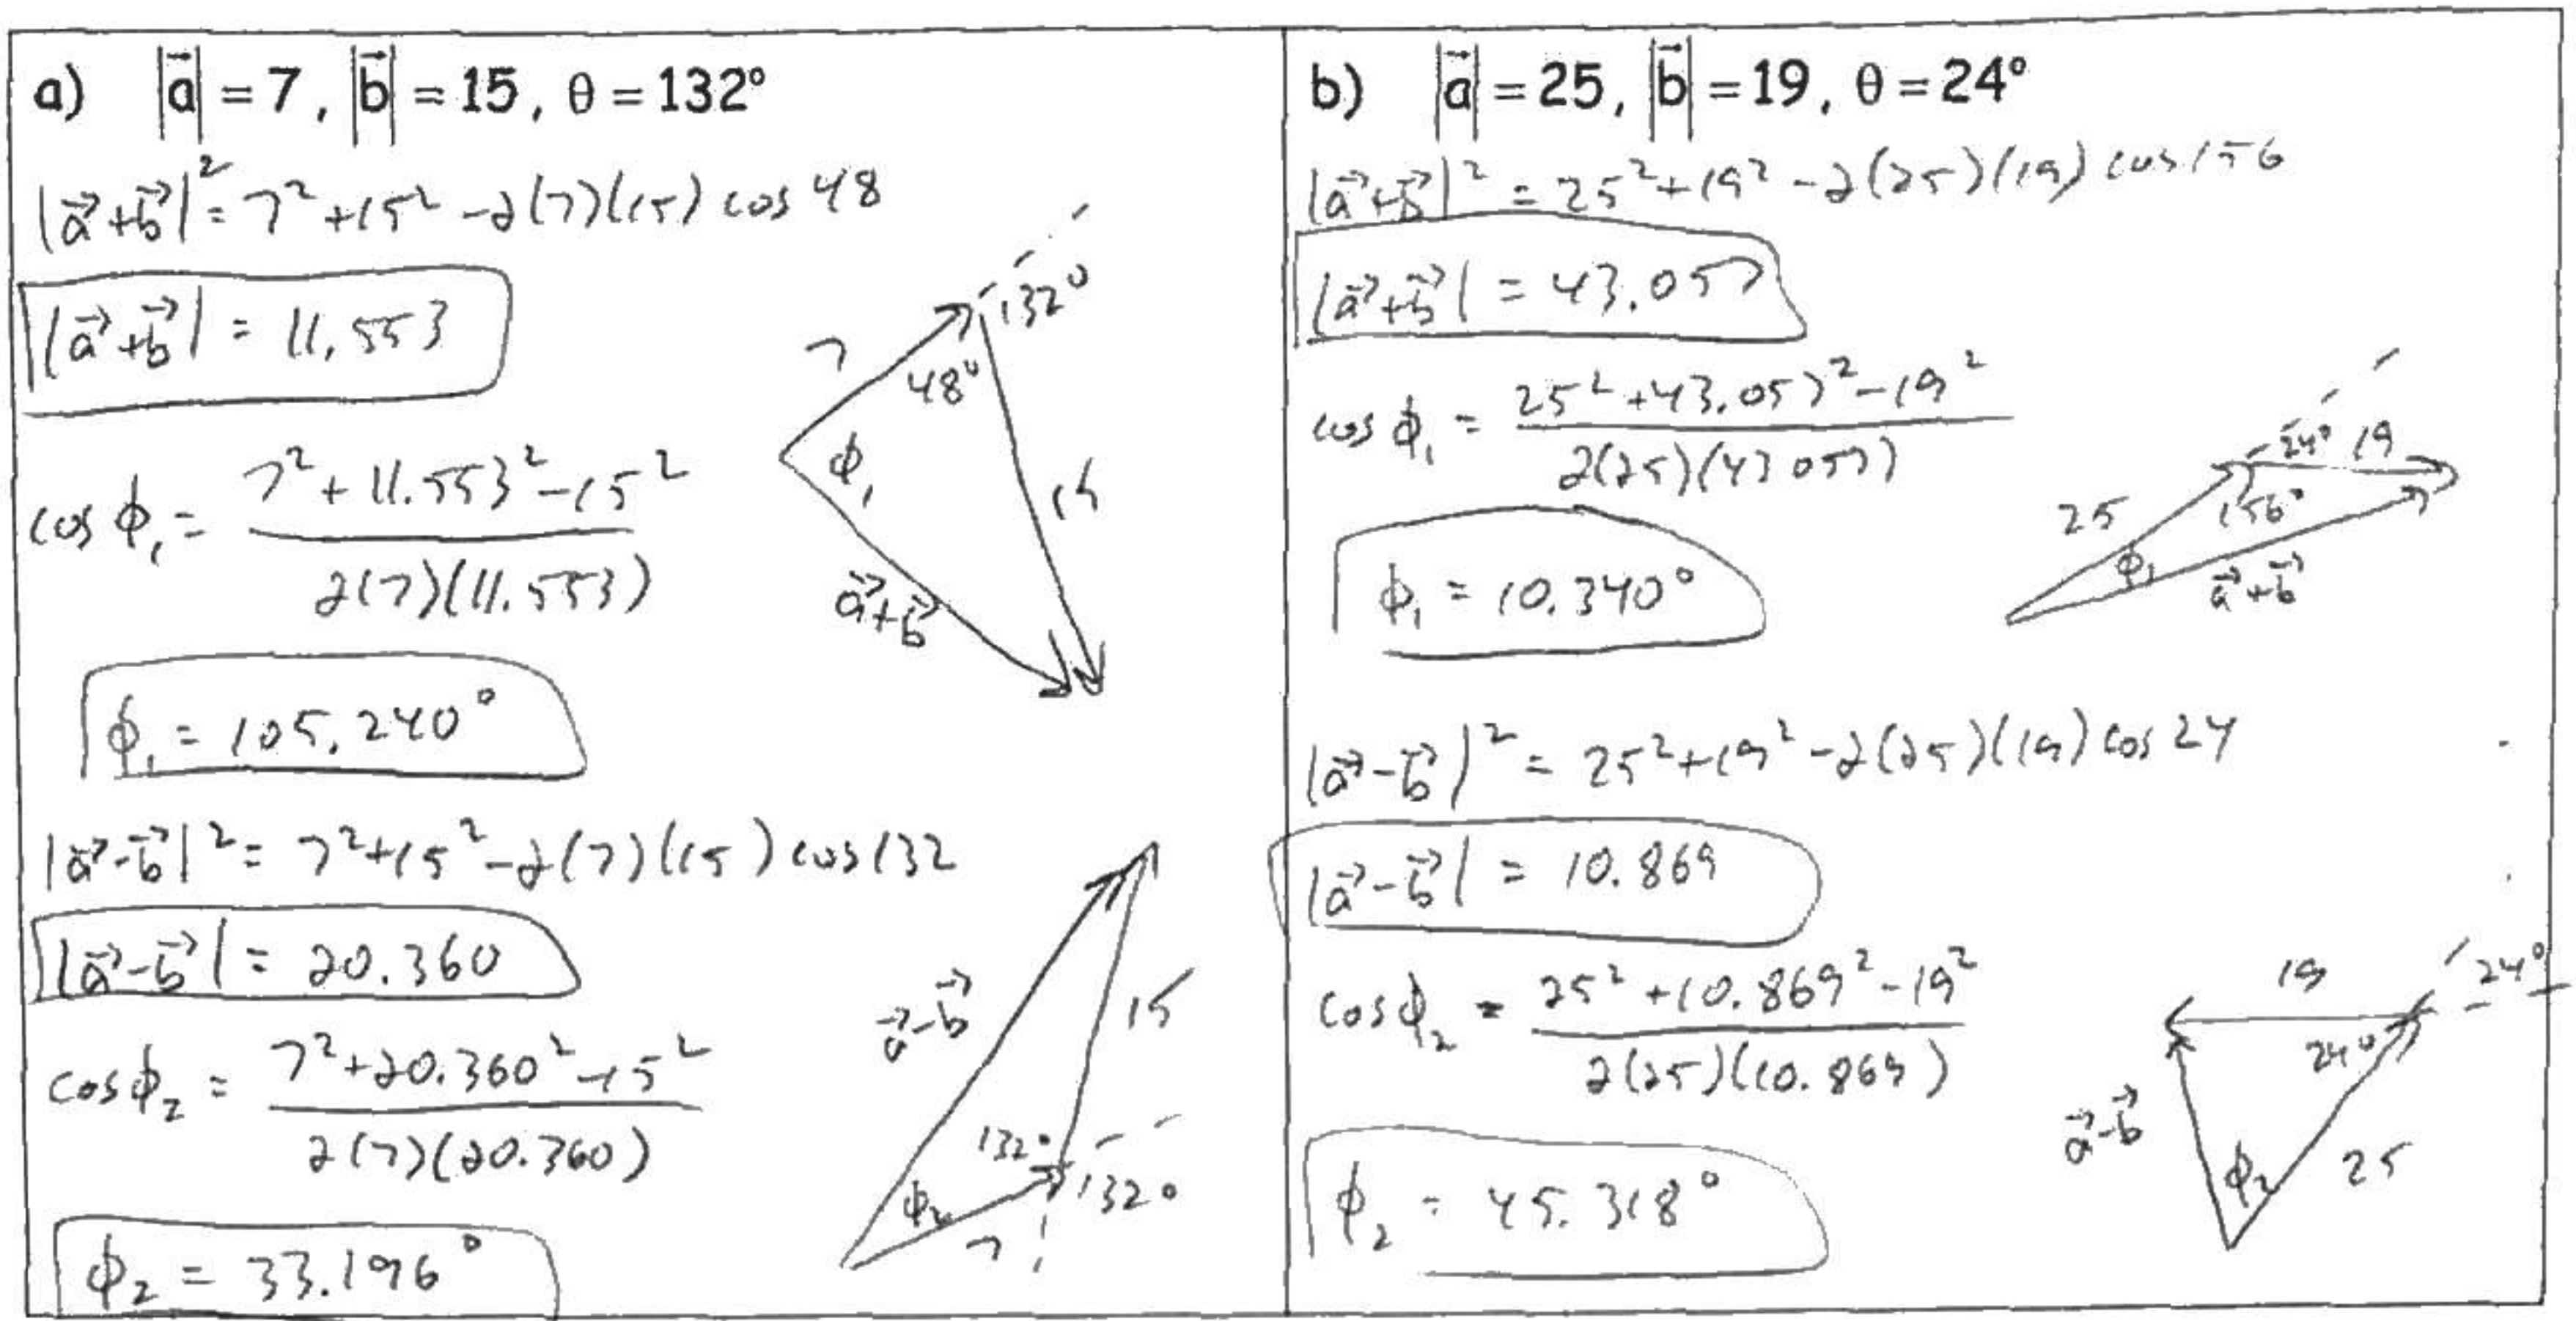 a) |a⃗| = 7, |b⃗| = 15, θ = 132°
|a⃗+b⃗|² = 7² + 15² - 2(7)(15) cos 48
|a⃗+b⃗| = 11.553
cos ϕ₁ = (7² + 11.553² - 15²) / (2(7)(11.553))
ϕ₁ = 105.240°
7
132°
48°
ϕ₁
15
a⃗+b⃗
|a⃗-b⃗|² = 7² + 15² - 2(7)(15) cos 132
|a⃗-b⃗| = 20.360
cos ϕ₂ = (7² + 20.360² - 15²) / (2(7)(20.360))
ϕ₂ = 33.196°
a⃗-b⃗
15
132°
132°
ϕ₂
7
b) |a⃗| = 25, |b⃗| = 19, θ = 24°
|a⃗+b⃗|² = 25² + 19² - 2(25)(19) cos 156
|a⃗+b⃗| = 43.057
cos ϕ₁ = (25² + 43.057² - 19²) / (2(25)(43.057))
ϕ₁ = 10.340°
24° 19
25
156°
ϕ₁
a⃗+b⃗
|a⃗-b⃗|² = 25² + 19² - 2(25)(19) cos 24
|a⃗-b⃗| = 10.869
cos ϕ₂ = (25² + 10.869² - 19²) / (2(25)(10.869))
ϕ₂ = 45.318°
19
24°
24°
a⃗-b⃗
ϕ₂
25